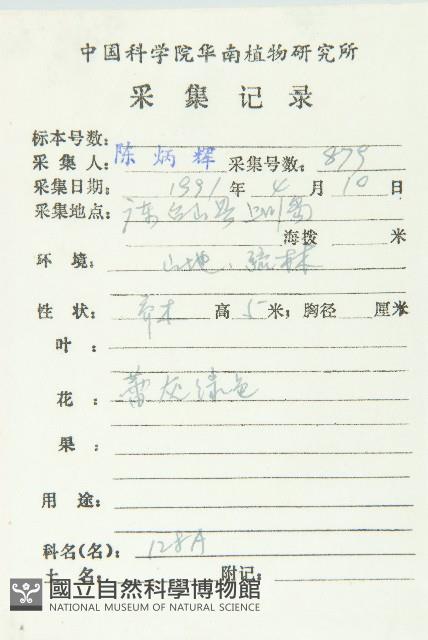 中国科学院华南植物研究所
采集记录
标本号数：
采集人：陈炳辉 采集号数：879
采集日期：1991年4月10日
采集地点：广东台山县上川岛
海拨 米
环境：山地、疏林
性状：乔木 高5米；胸径 厘米
叶：
花：蕾灰绿色
果：
用途：
科名(名)：128A
土名： 附记：
國立自然科學博物館
NATIONAL MUSEUM OF NATURAL SCIENCE